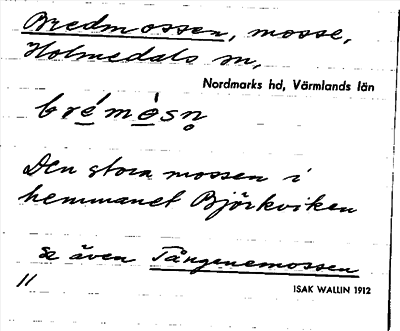 Bredmossen, mosse,
Holmedals sn,
Nordmarks hd, Värmlands län
Den stora mossen i
hemmanet Björkviken
Se även Tångenemossen
ISAK WALLIN 1912